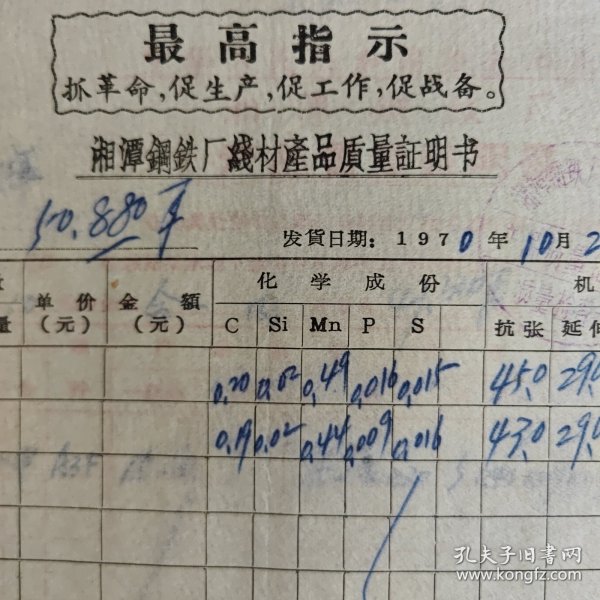 最高指示
抓革命,促生产,促工作,促战备。
湘潭鋼鉄厂綫材產品质量証明书
50.880
发貨日期: 1970年10月2
化学成份 机
量 单价(元) 金額(元) C Si Mn P S 抗张 延伸
0.20 0.02 0.49 0.016 0.015 45.0 29.0
0.19 0.02 0.44 0.009 0.016 43.0 29.0
孔夫子旧书网
www.kongfz.com